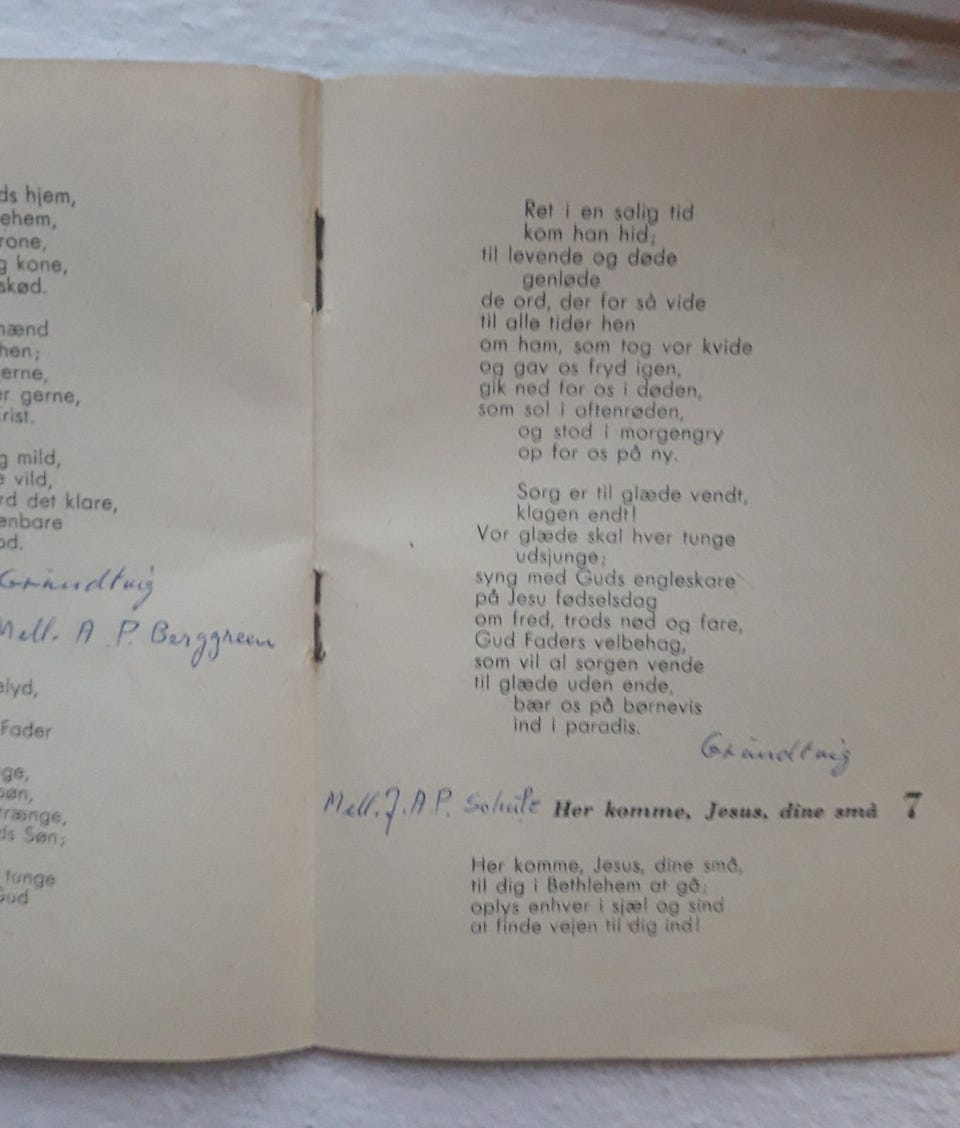 ds hjem,
ehem,
rone,
g kone,
skød.
mænd
hen;
erne,
er gerne,
rist.
g mild,
e vild,
rd det klare,
enbare
od.
Grundtvig
Mell. A P. Berggreen
elyd,
Fader
ge,
bøn,
trænge,
ds Søn;
tunge
Gud
Ret i en salig tid
kom han hid;
til levende og døde
genløde
de ord, der for så vide
til alle tider hen
om ham, som tog vor kvide
og gav os fryd igen,
gik ned for os i døden,
som sol i aftenrøden,
og stod i morgengry
op for os på ny.
Sorg er til glæde vendt,
klagen endt!
Vor glæde skal hver tunge
udsjunge;
syng med Guds engleskare
på Jesu fødselsdag
om fred, trods nød og fare,
Gud Faders velbehag,
som vil al sorgen vende
til glæde uden ende,
bær os på børnevis
ind i paradis.
Grundtvig
Mell. J. A P. Schulz Her komme, Jesus, dine små 7
Her komme, Jesus, dine små,
til dig i Bethlehem at gå;
oplys enhver i sjæl og sind
at finde vejen til dig ind!